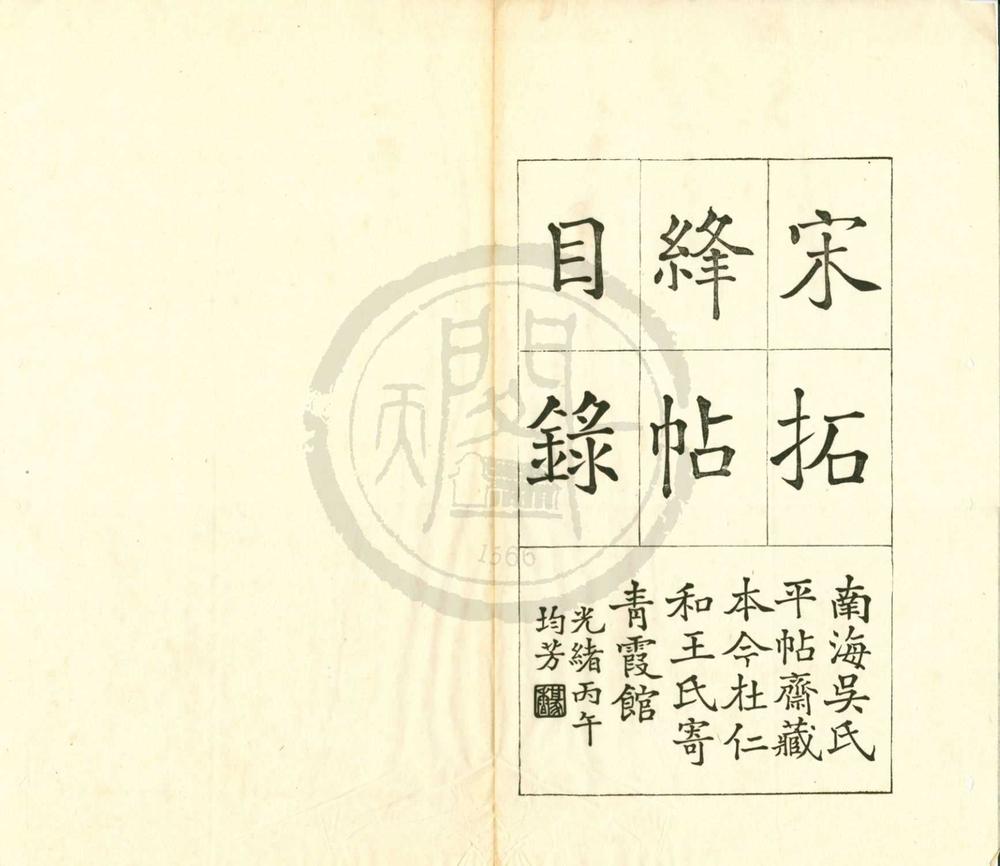 宋拓
綘帖
目錄
南海吳氏
平帖齋藏
本今杜仁
和王氏寄
青霞館
光緒丙午
均芳
天
閣
1566